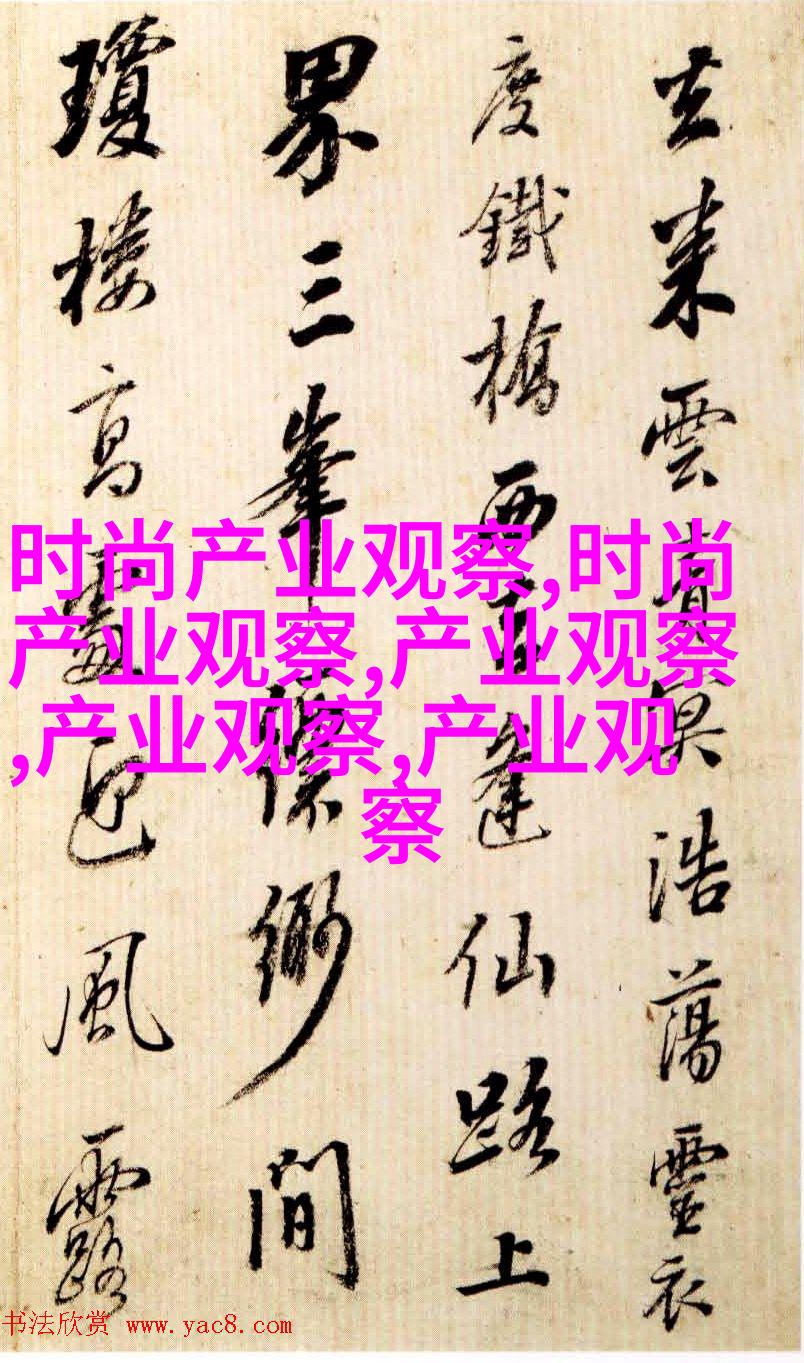 去来雲冥浩蕩靈衣
度鐵橋西逢仙路上
界三峯縹緲間
瓊樓高風露
时尚产业观察,时尚
产业观察,产业观察
,产业观察,产业观
察
书法欣赏 www.yac8.com